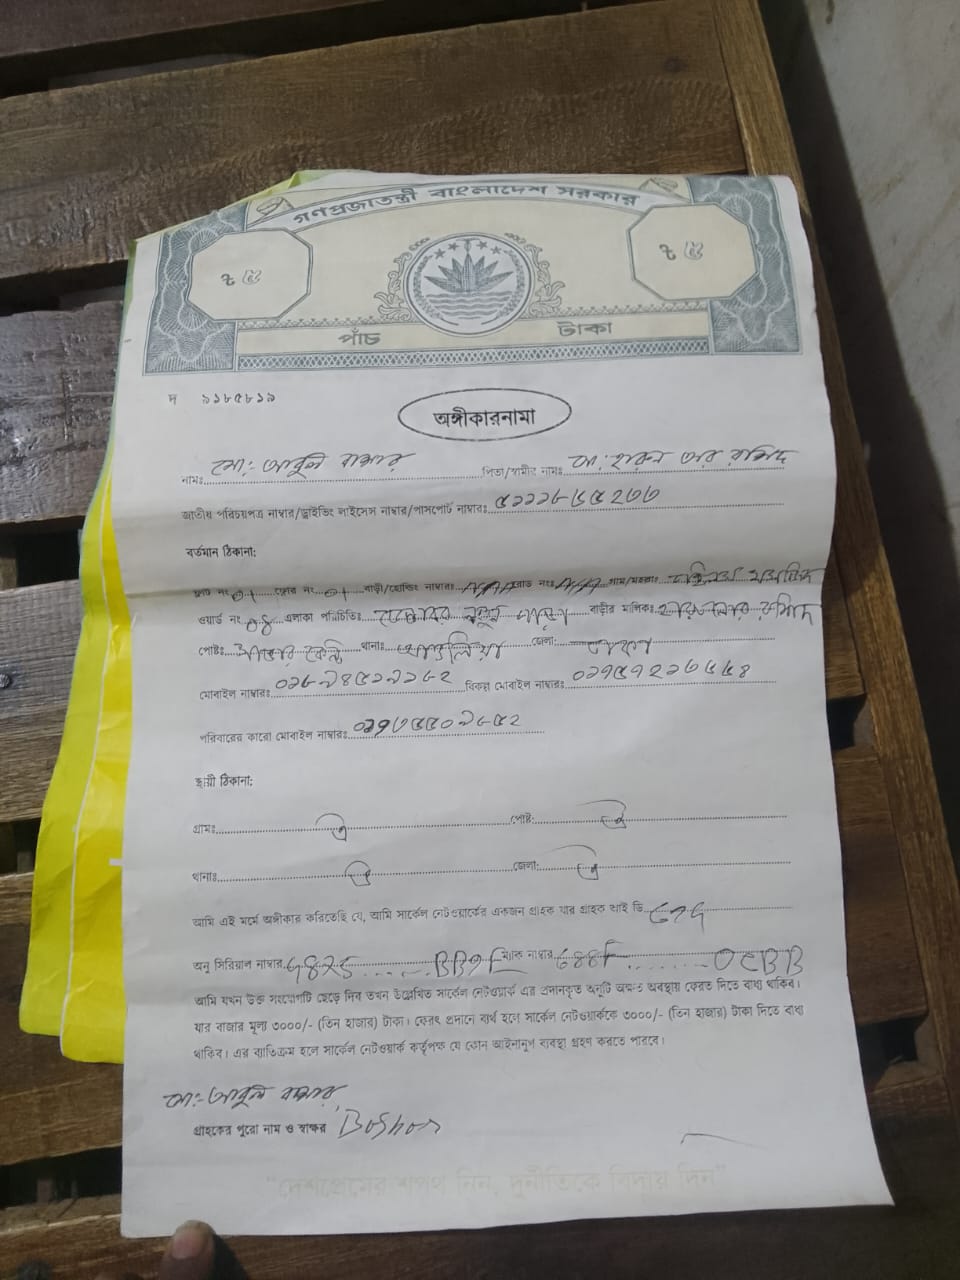 গণপ্রজাতন্ত্রী বাংলাদেশ সরকার
৳ ৫ ৳ ৫
পাঁচ টাকা
দ ৯১৮৫৮১৯
অঙ্গীকারনামা
নামঃ মো: আবুল বাশার পিতা/স্বামীর নামঃ মো: হারুন অর রশিদ
জাতীয় পরিচয়পত্র নাম্বার/ড্রাইভিং লাইসেন্স নাম্বার/পাসপোর্ট নাম্বারঃ
বর্তমান ঠিকানা:
ফ্লাট নং ০১ ফ্লোর নং ০১ বাড়ী/হোল্ডিং নাম্বারঃ N/A রোড নংঃ N/A গ্রাম/মহল্লাঃ
ওয়ার্ড নং ০৪ এলাকা পরিচিতিঃ বাড়ীর মালিকঃ
পোষ্টঃ থানাঃ আশুলিয়া জেলা: ঢাকা
মোবাইল নাম্বারঃ বিকল্প মোবাইল নাম্বারঃ
পরিবারের কারো মোবাইল নাম্বারঃ
স্থায়ী ঠিকানা:
গ্রামঃ ঐ পোষ্ট: ঐ
থানাঃ ঐ জেলা: ঐ
আমি এই মর্মে অঙ্গীকার করিতেছি যে, আমি সার্কেল নেটওয়ার্কের একজন গ্রাহক যার গ্রাহক আই ডি
অনু সিরিয়াল নাম্বার ম্যাক নাম্বার
আমি যখন উক্ত সংযোগটি ছেড়ে দিব তখন উল্লেখিত সার্কেল নেটওয়ার্ক এর প্রদানকৃত অনুটি অক্ষত অবস্থায় ফেরত দিতে বাধ্য থাকিব।
যার বাজার মূল্য ৩০০০/- (তিন হাজার) টাকা। ফেরৎ প্রদানে ব্যর্থ হলে সার্কেল নেটওয়ার্ককে ৩০০০/- (তিন হাজার) টাকা দিতে বাধ্য
থাকিব। এর ব্যতিক্রম হলে সার্কেল নেটওয়ার্ক কর্তৃপক্ষ যে কোন আইনানুগ ব্যবস্থা গ্রহণ করতে পারবে।
মো:- আবুল বাশার
গ্রাহকের পুরো নাম ও স্বাক্ষর
"দেশপ্রেমের শপথ নিন, দুর্নীতিকে বিদায় দিন"